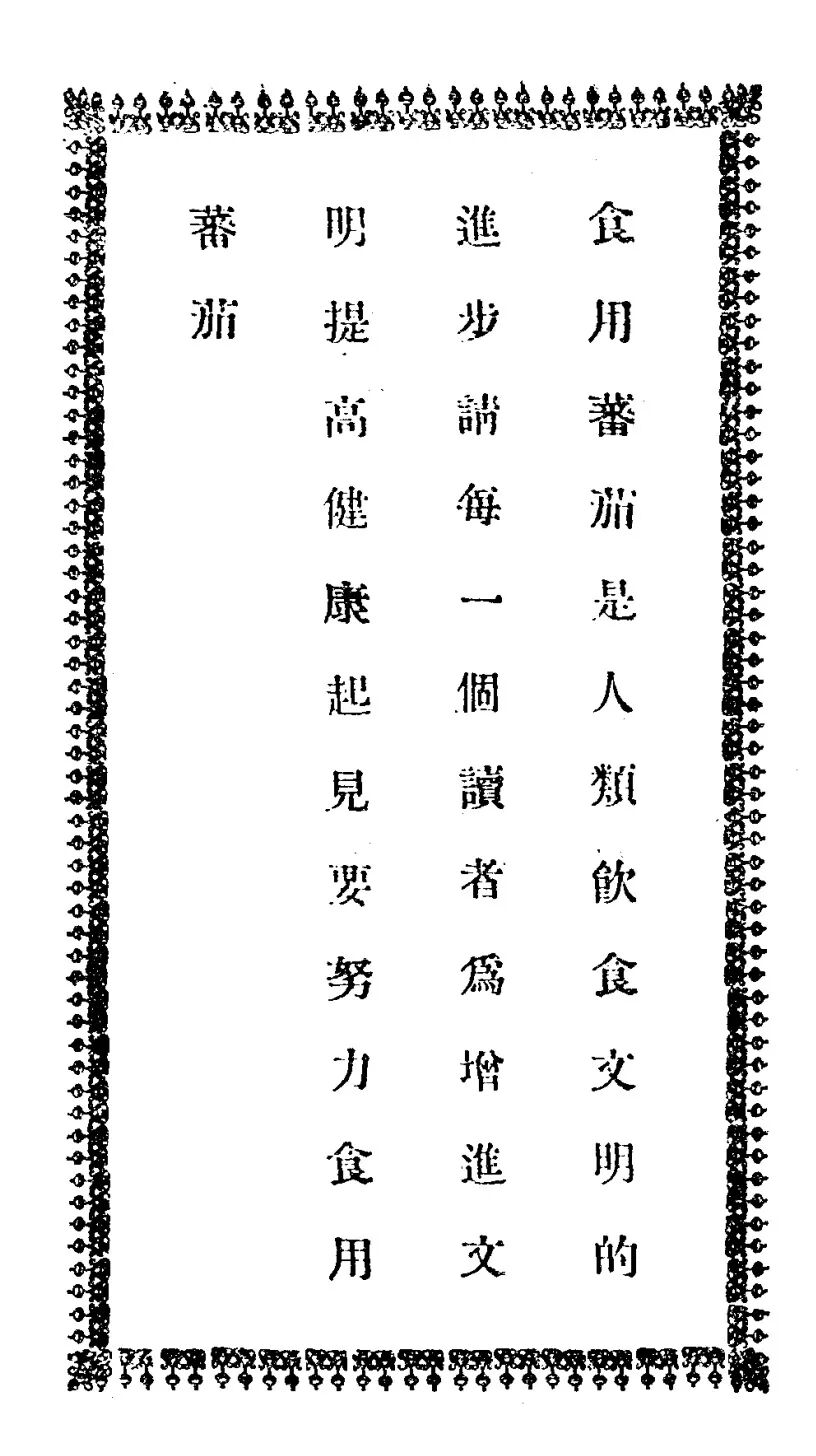 食用蕃茄是人類飲食文明的
進步請每一個讀者爲增進文
明提高健康起見要努力食用
蕃茄